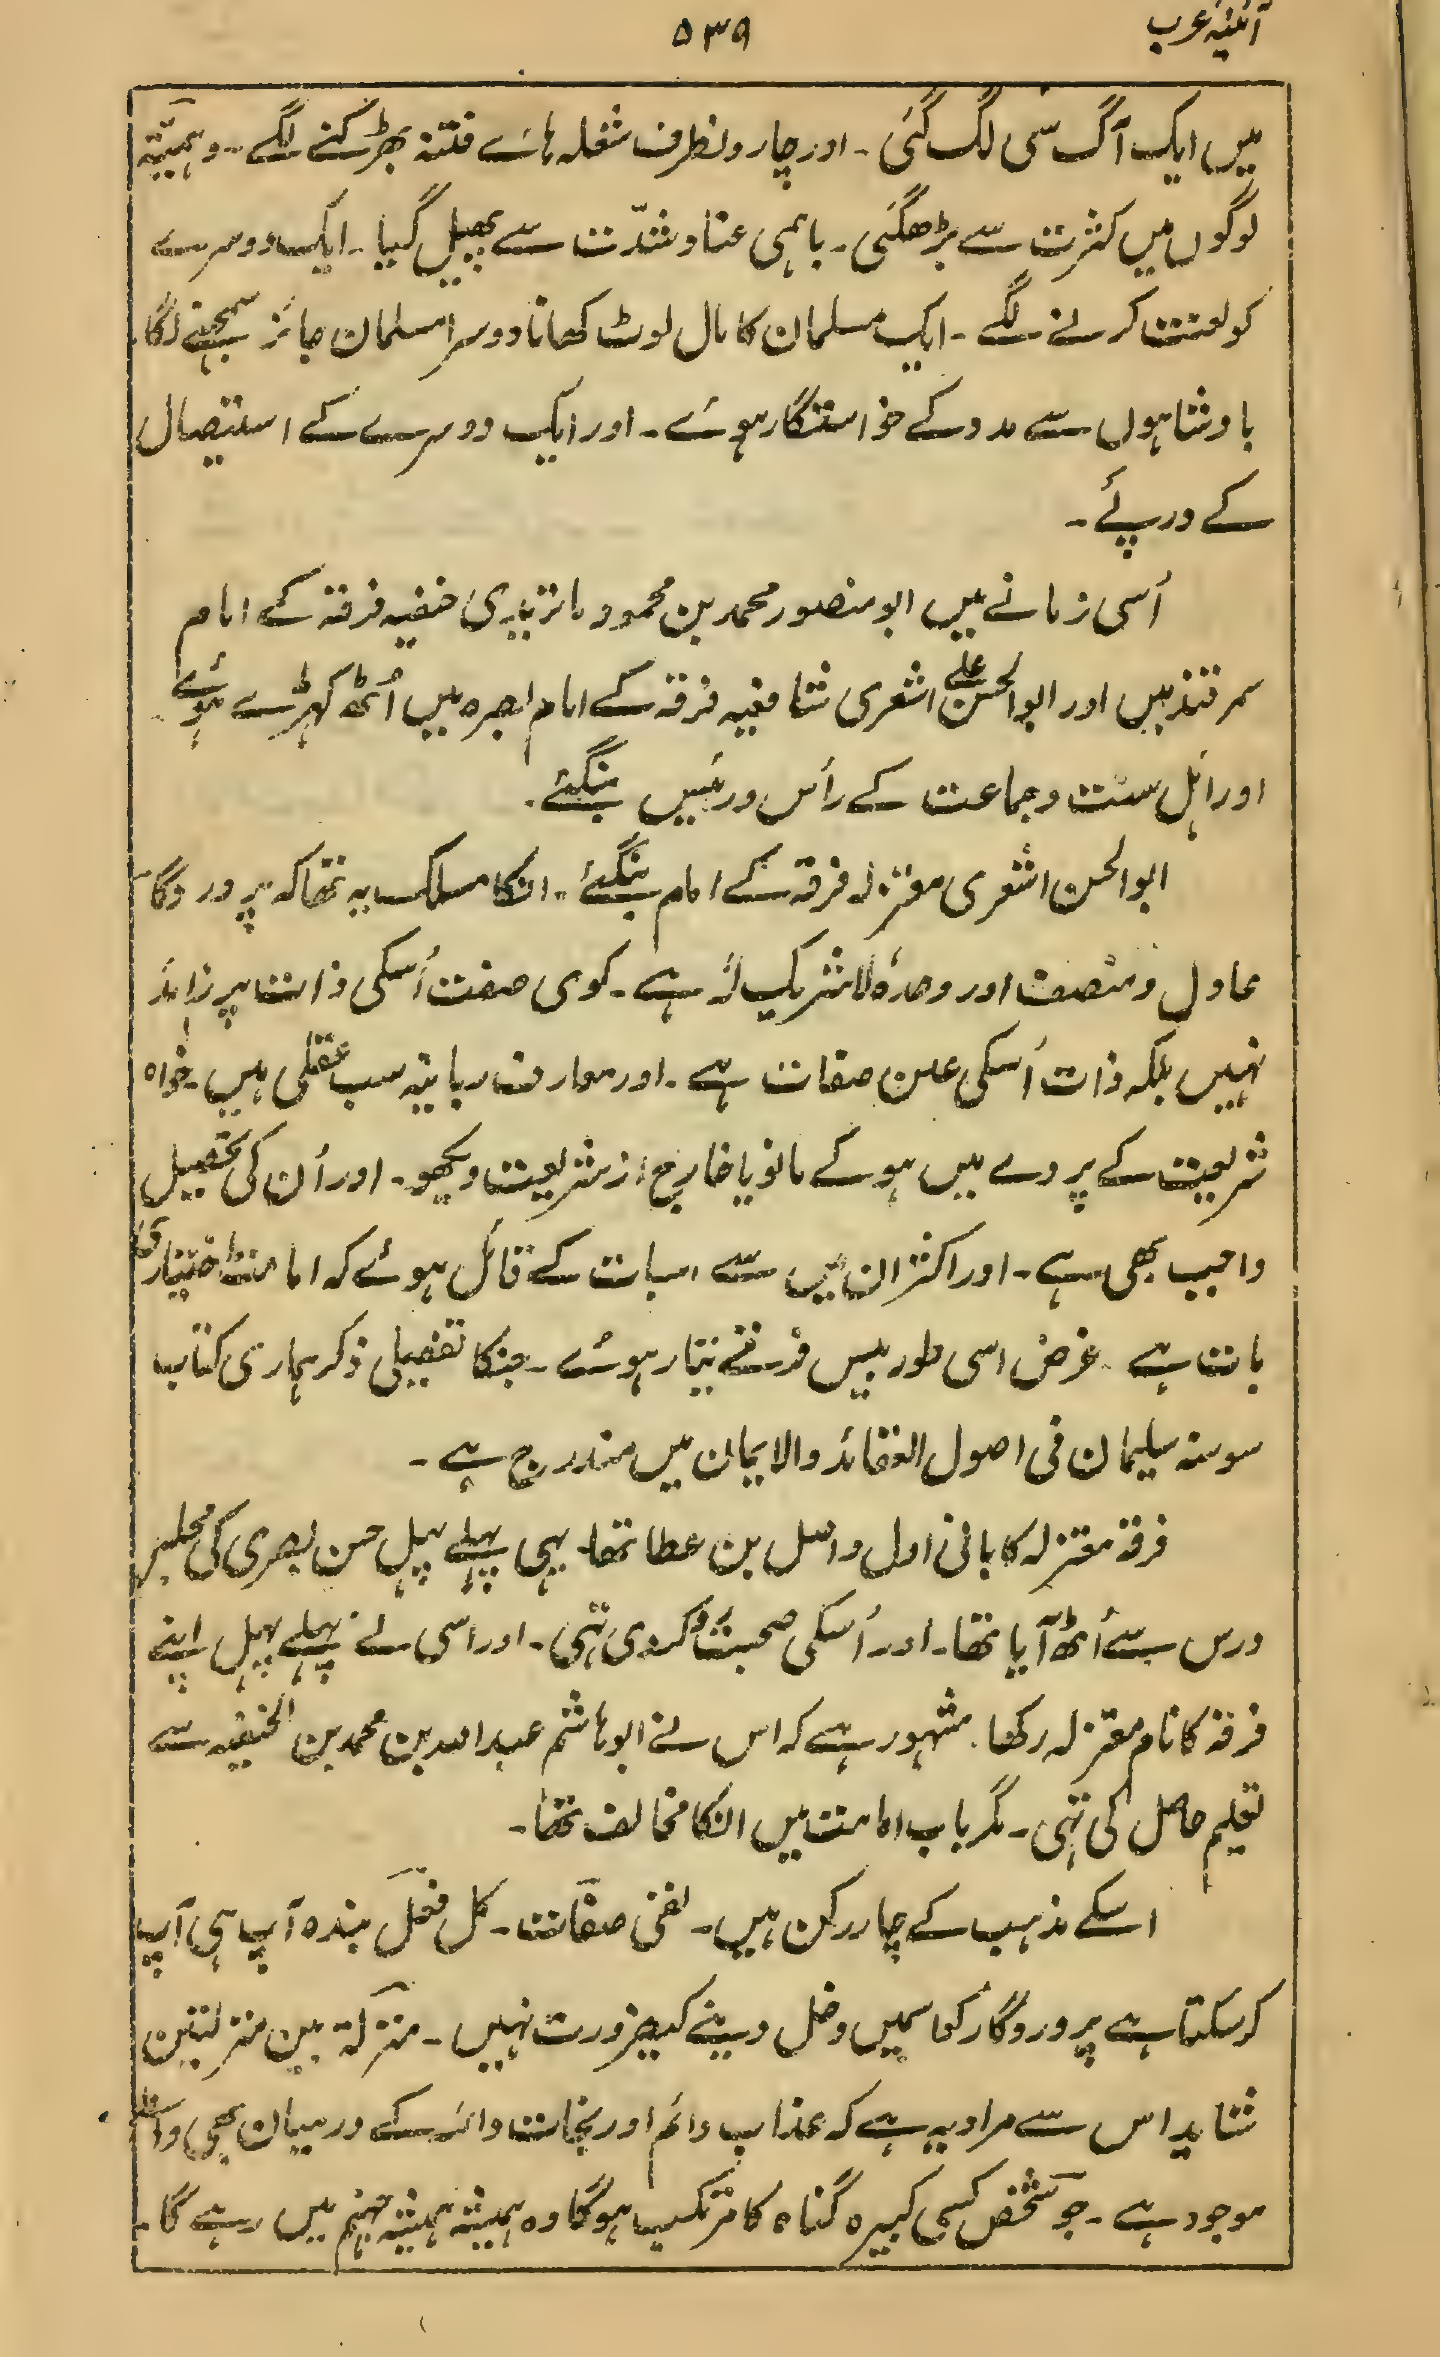 آئینۂ عرب
۵۳۹
میں ایک آگ سی لگ گئی۔ اور چارونطرف شعلہ ہائے فتنہ بھڑکنے لگے۔ وہمیّتہ
لوگوں میں کثرت سے بڑھگئی۔ باہمی عناد شدّت سے پھیل گیا۔ ایک دوسرے
کو لعنت کرنے لگے۔ ایک مسلمان کا مال لوٹ کھانا دوسرا مسلمان جائز سمجہنے لگا۔
بادشاہوں سے مدد کے خواستگار ہوئے۔ اور ایک دوسرے کے استیصال
کے درپئے۔
اُسی زمانے میں ابو منصور محمد بن محمود ماتریدی حنفیہ فرقہ کے امام
سمرقند میں اور ابو الحسن علے اشعری شافعیہ فرقہ کے امام بصرہ میں اُٹھ کہڑے ہوئے
اور اہل سنت و جماعت کے رأس و رئیس بنگئے۔
ابو الحسن اشعری معتزلہ فرقہ کے امام بنگئے۔ انکا مسلک یہ تھا کہ پروردگا
عادل و منصف اور وحدہٗ لاشریک لہٗ ہے۔ کوی صفت اُسکی ذات پر زائد
نہیں بلکہ ذات اُسکی عین صفات ہے۔ اور معارف ربانیہ سب عقلی ہیں۔ خواہ
شریعت کے پردے میں ہو کے مانو یا خارج از شریعت دیکھو۔ اور اُن کی تحصیل
واجب بھی ہے۔ اور اکثر ان میں سے اسبات کے قائل ہوئے کہ امامت اختیاری
بات ہے۔ غرض اسی طور بیس فرقے تیار ہوئے۔ جنکا تفصیلی ذکر ہماری کتاب
سوسنہ سلیمان فی اصول العقائد والایمان میں مندرج ہے۔
فرقہ معتزلہ کا بانی اول واصل بن عطا تھا۔ یہی پہلے پہل حسن بصری کی مجلس
درس سے اُٹھ آیا تھا۔ اور اُسکی صحبت ترک کردی تہی۔ اور اسی نے پہلے پہل اپنے
فرقہ کا نام معتزلہ رکھا۔ مشہور ہے کہ اس نے ابو ہاشم عبد اللہ بن محمد بن الحنفیہ سے
تعلیم حاصل کی تہی۔ مگر باب امامت میں انکا مخالف تھا۔
اسکے مذہب کے چار رکن ہیں۔ نفی صفات۔ کل فعل بندہ آپ ہی آپ
کر سکتا ہے پروردگار کو اسمیں دخل دینے کیضرورت نہیں۔ منزلۃ بین منزلتین
شاید اس سے مراد یہ ہے کہ عذاب دائم اور نجات دائم کے درمیان بھی واسطہ
موجود ہے۔ جو شخص کسی کبیرہ گناہ کا مرتکب ہوگا وہ ہمیشہ ہمیشہ جہنم میں رہے گا۔